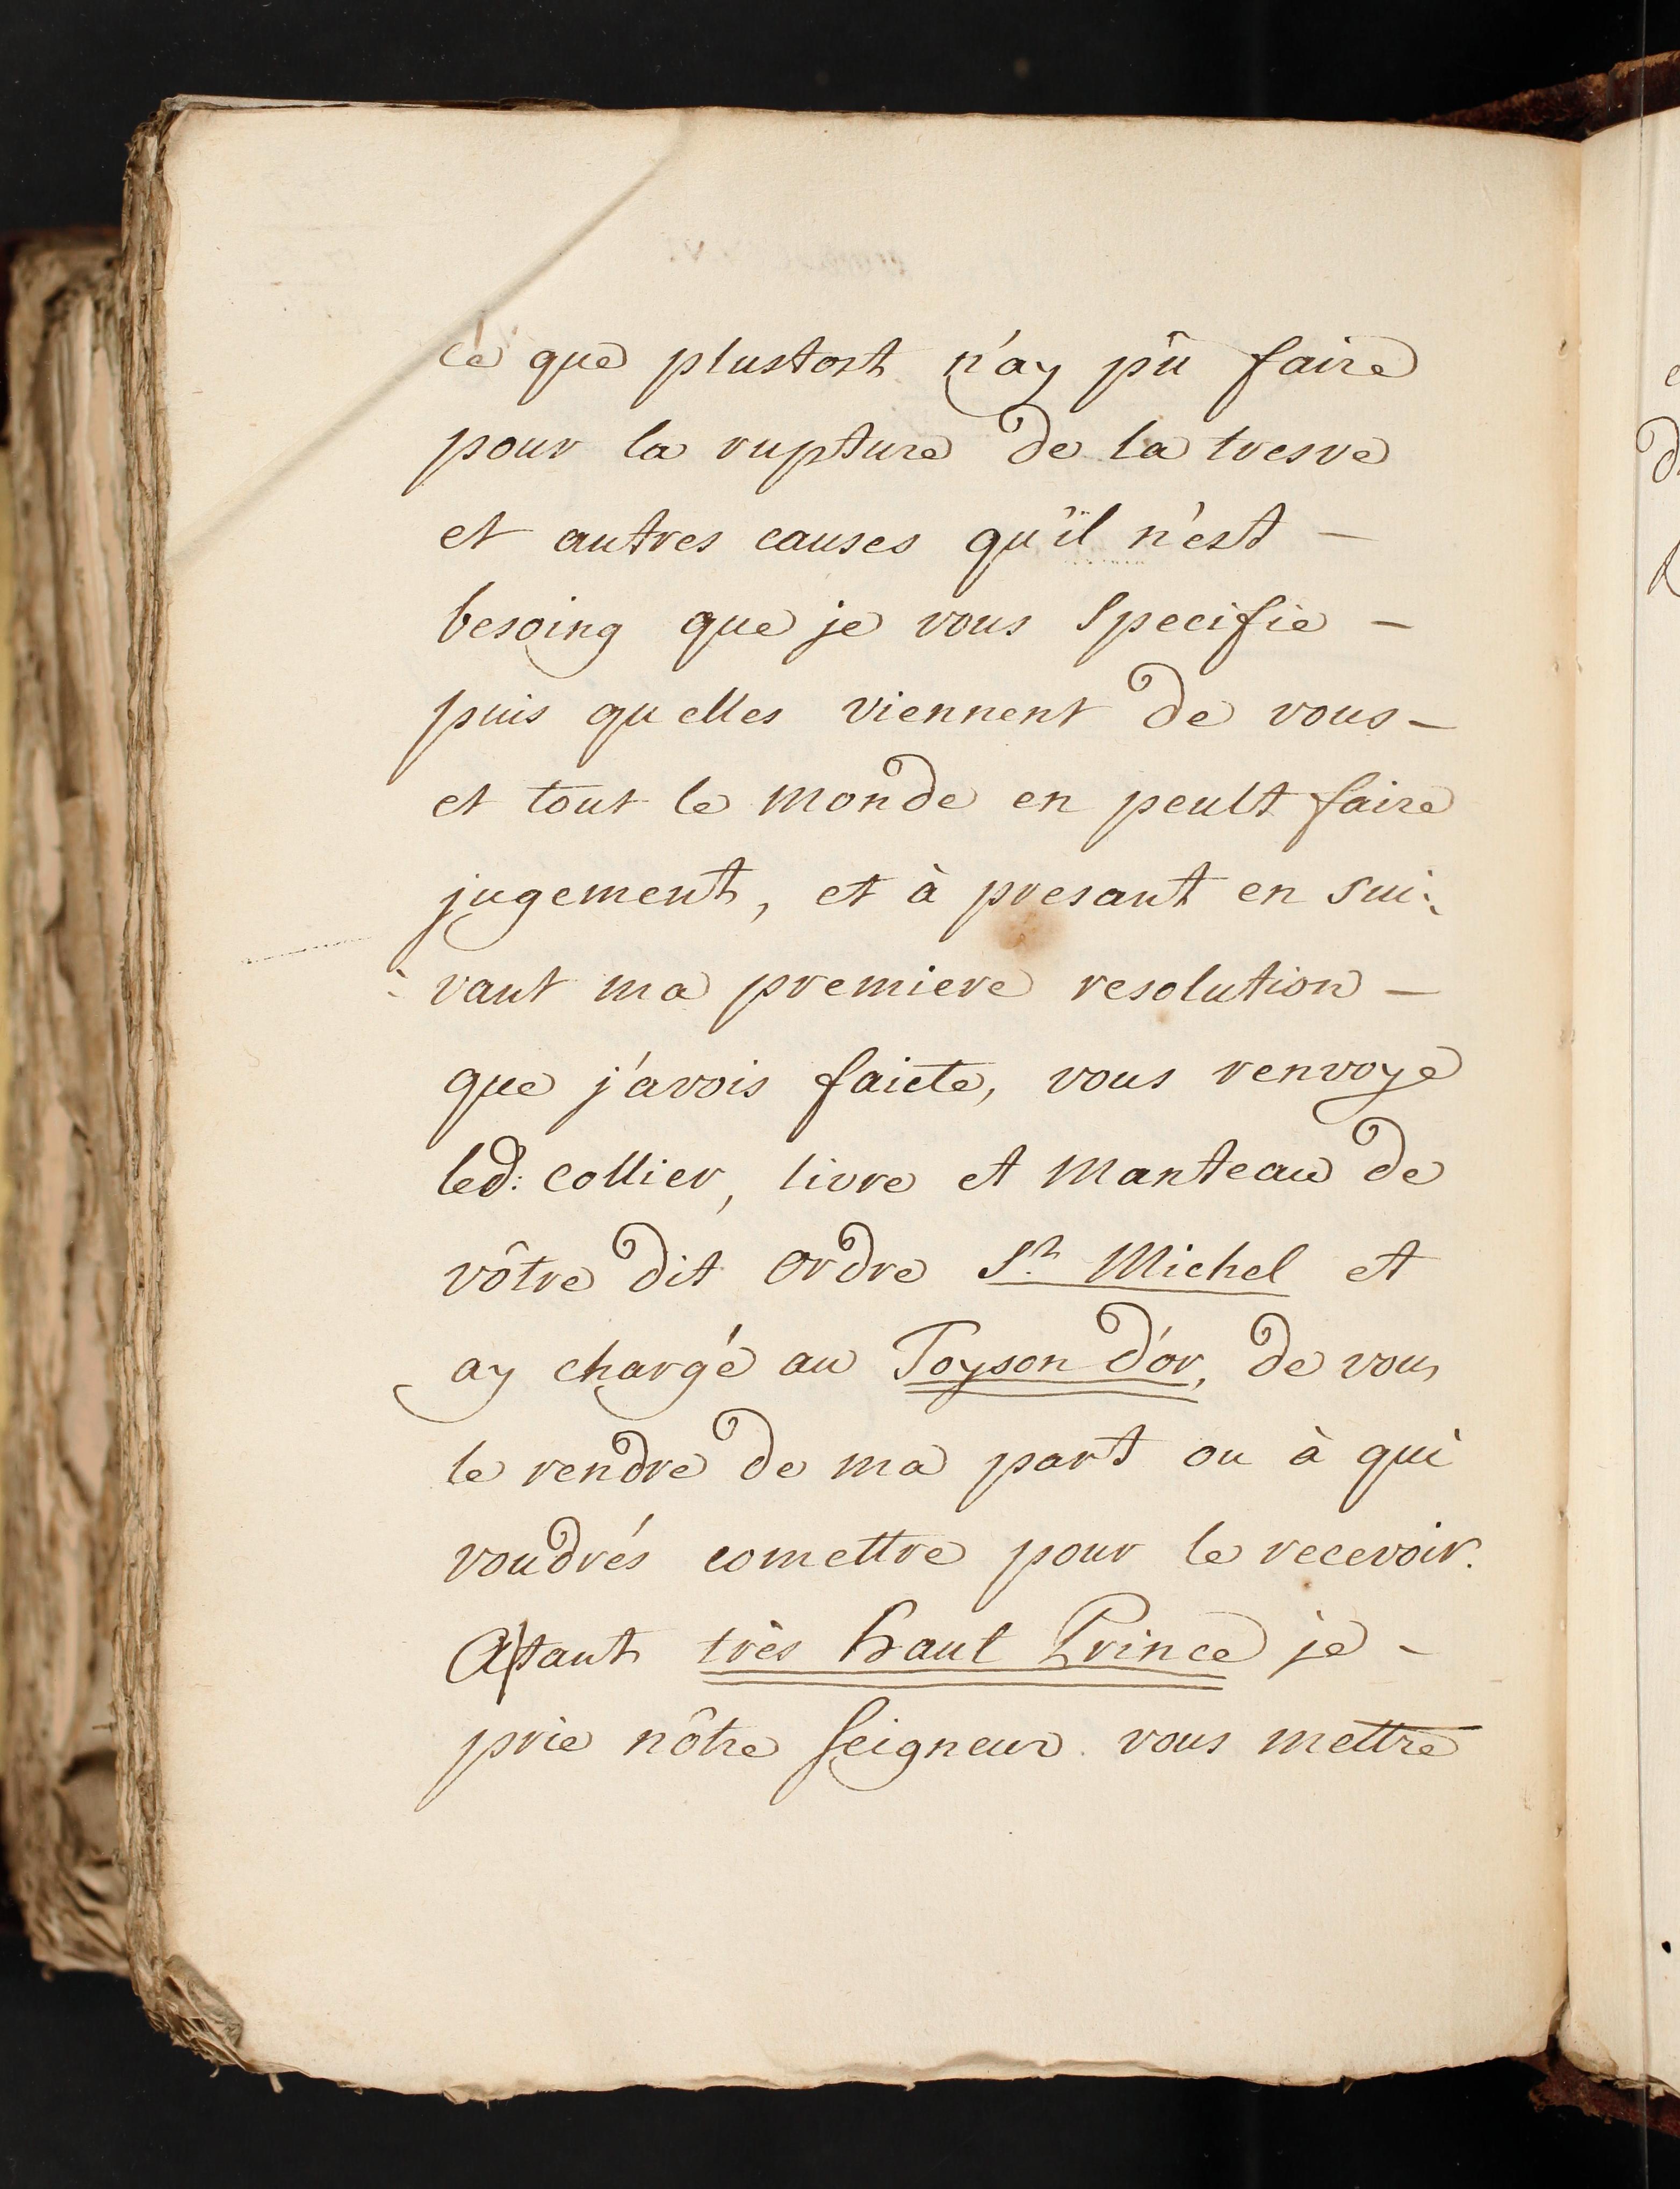 ce que plustost n'ay pû faire
pour la rupture de la tresve
et autres causes qu'il n'est –
besoing que je vous specifie –
puis qu elles viennent de vous –
et tout le monde en peult faire
jugement, et à presant en sui:
vant ma premiere resolution –
que j'avois faicte, vous renvoye
led: collier, livre et manteau de
vôtre dit ordre St. Michel et
ay chargé au Toyson d'or, de vous
le rendre de ma part ou à qui
voudrés comettre pour le recevoir.
A|tant très haut Prince je –
prie nôtre seigneur vous mettre